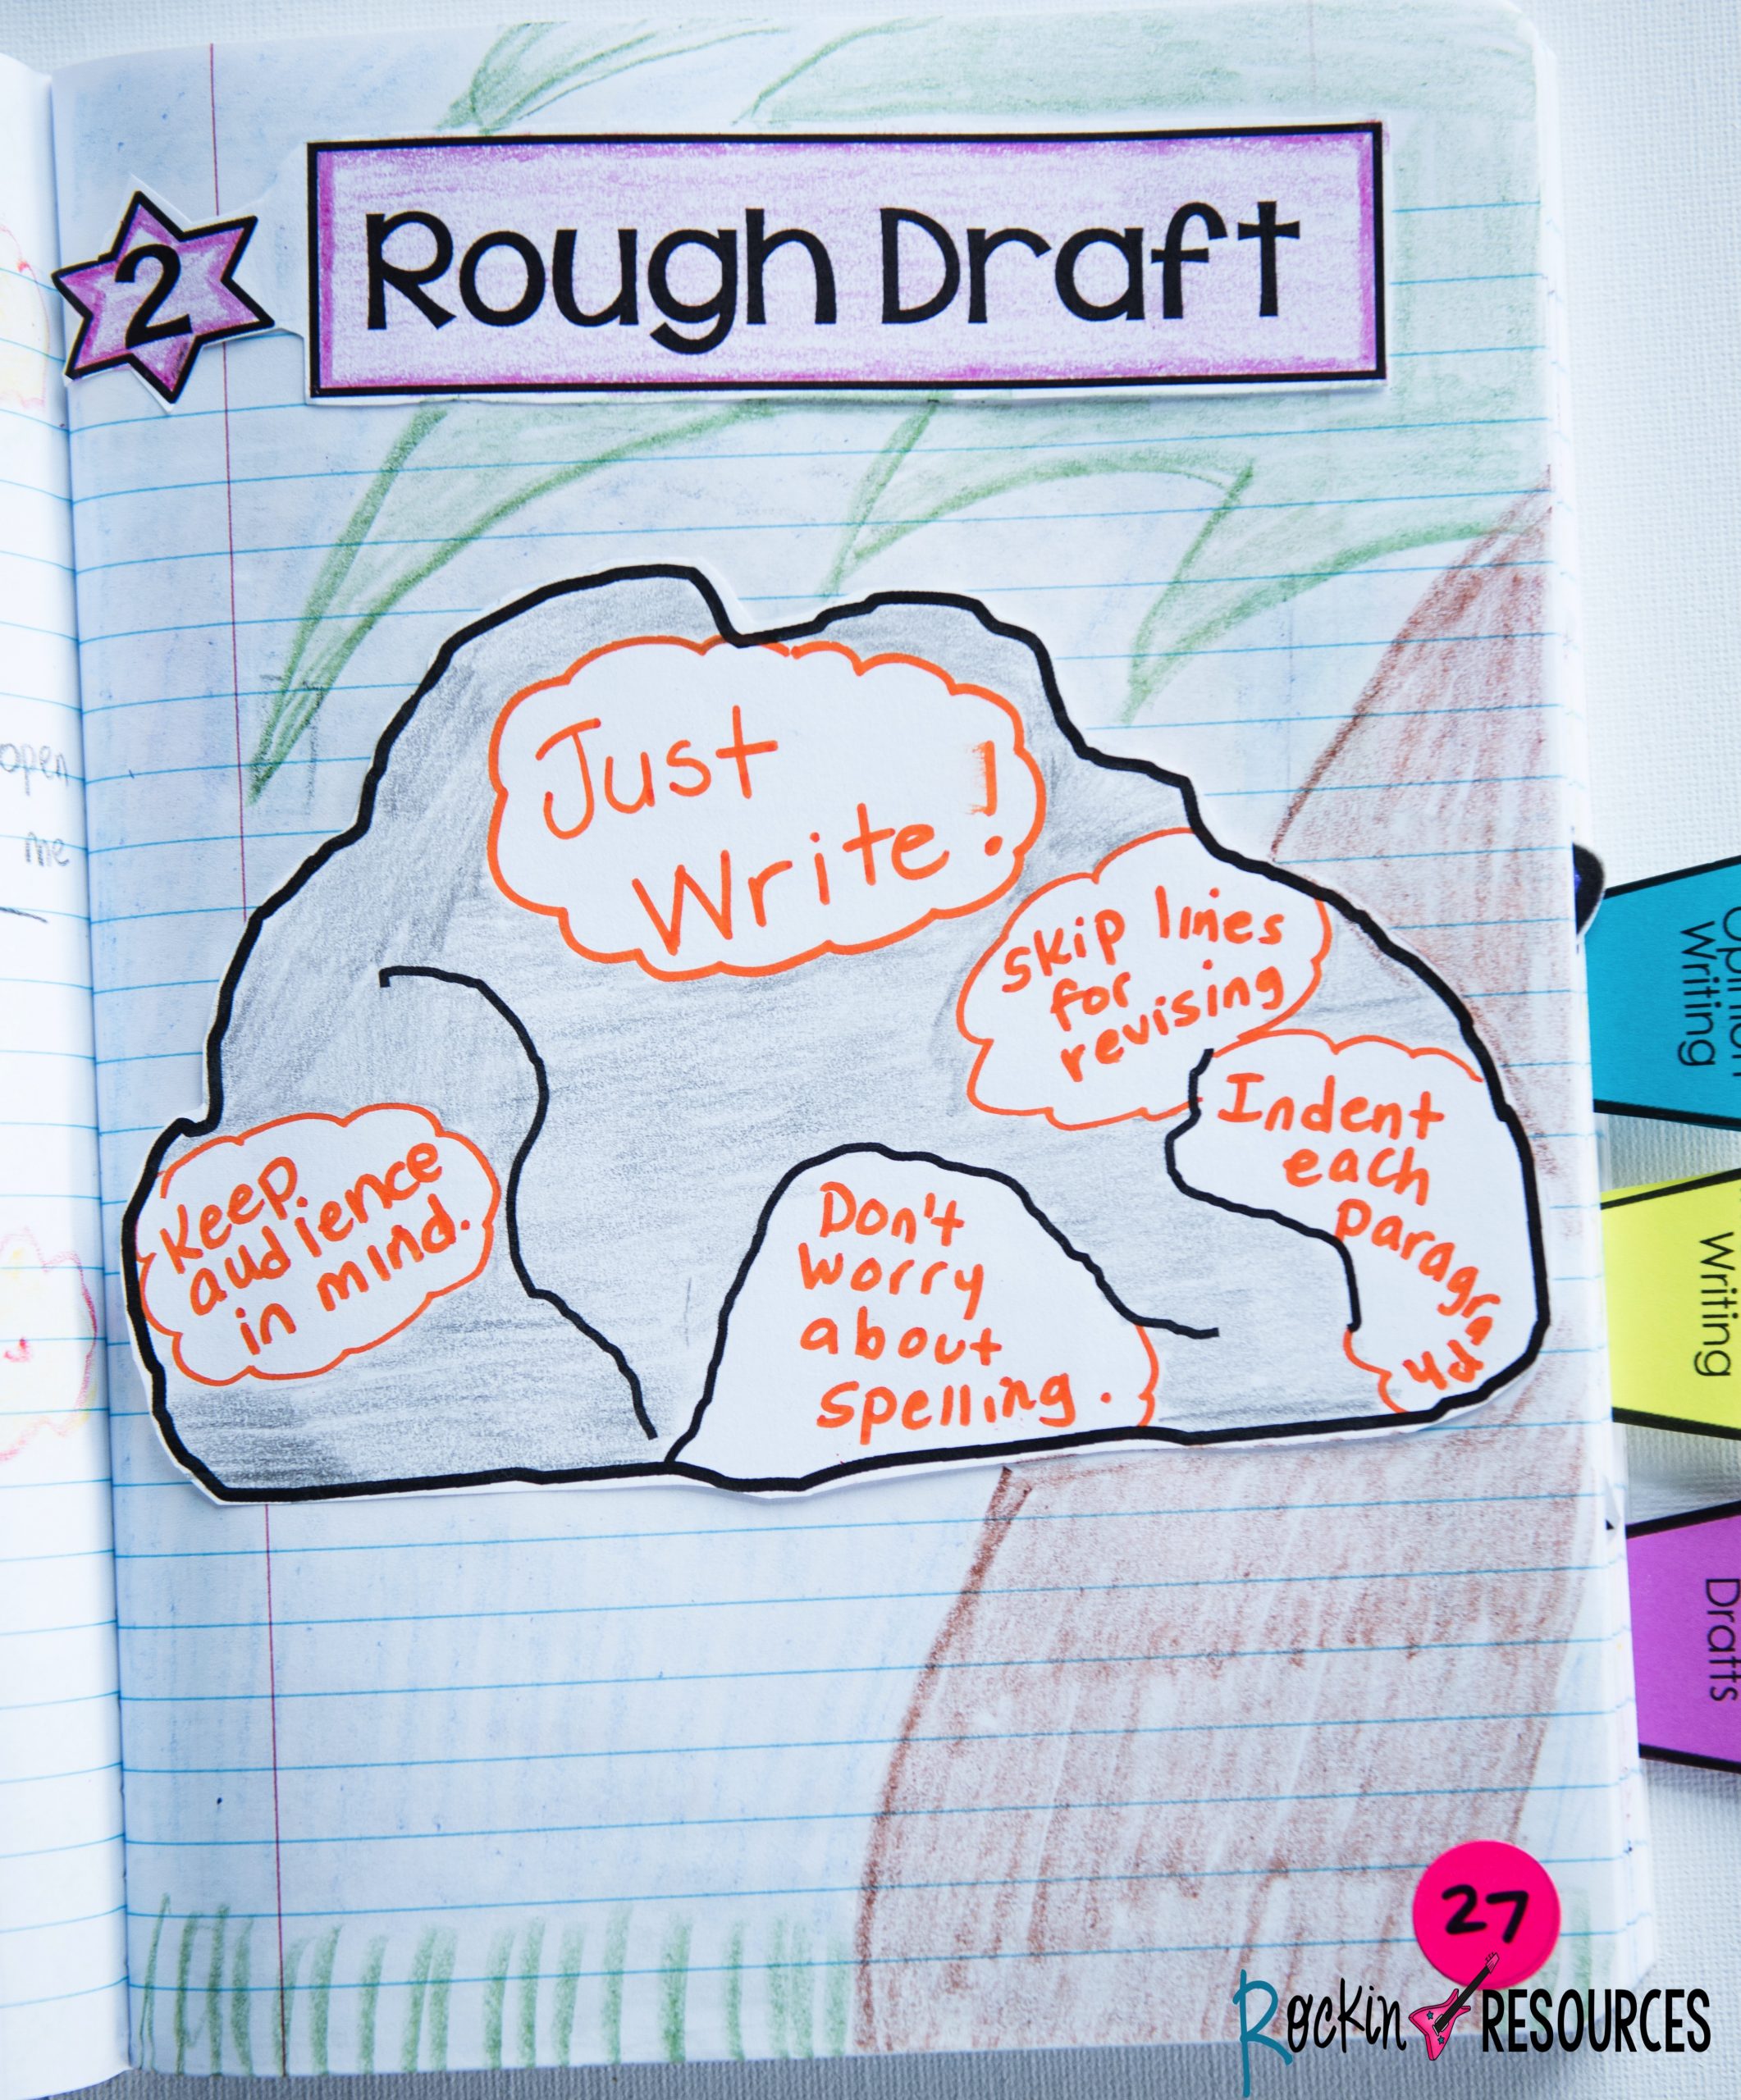 2
Rough Draft
open
me
Just
Write!
skip lines
for
revising
Indent
each
paragra
ph
Keep
audience
in mind.
Don't
worry
about
spelling.
Opinion
Writing
Writing
Drafts
27
Rockin RESOURCES